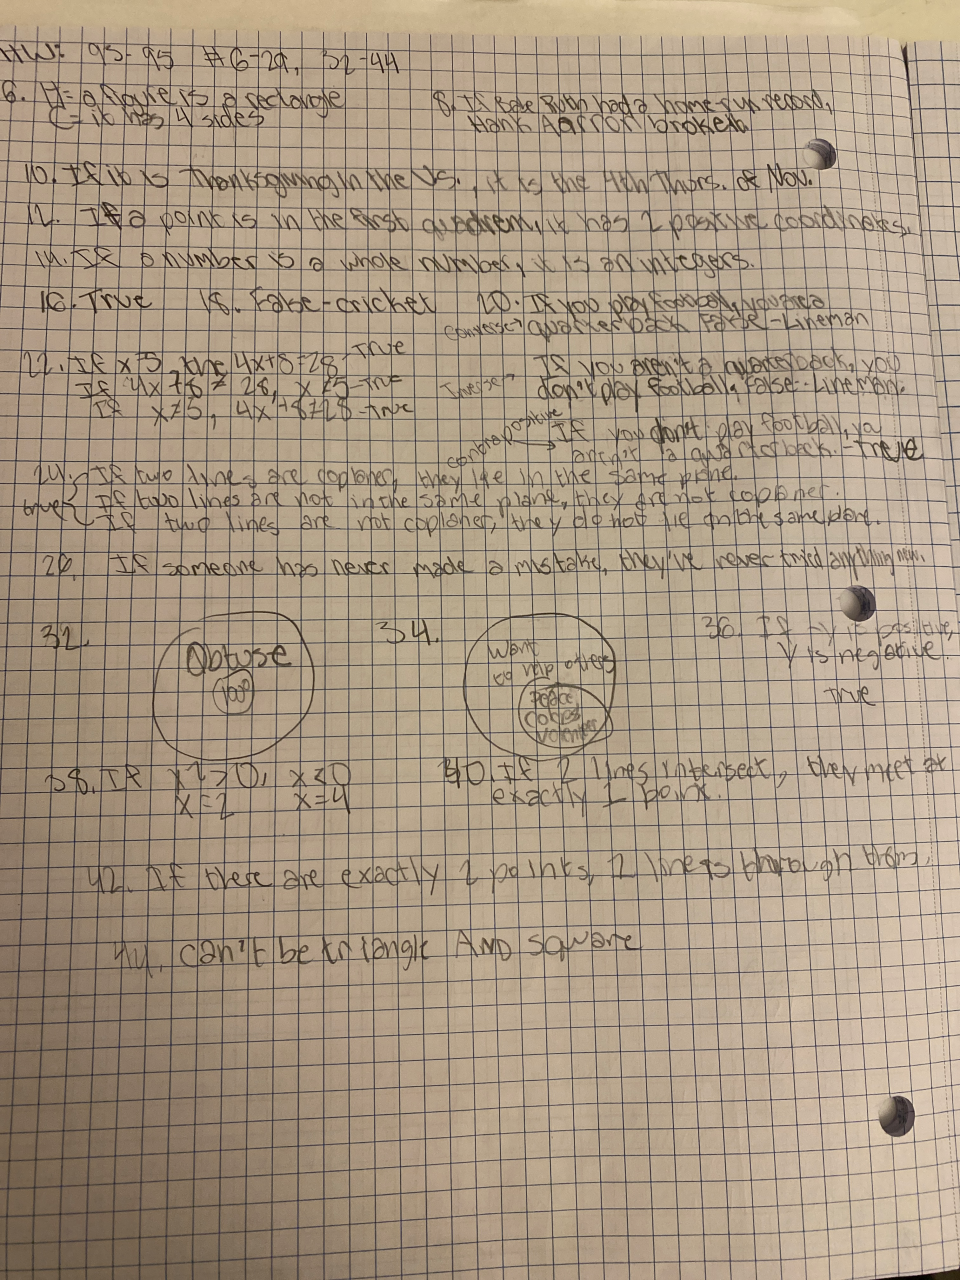 HW: 93-95 #6-29, 32-44
6. H= a figure is a rectangle
C= it has 4 sides
8. If Babe Ruth had a home-run record,
Hank Aarron broke it
10. If it is Thanksgiving in the US., it is the 4th Thurs. of Nov.
12. If a point is in the first it has 2 positive coordinates.
14. If a number is a whole number, it is an integers.
16. True 18. False-cricket 20. If you play football, you are a
converse→ quarterback False-Lineman
22. If x=5, the 4x+8=28-True
If 4x+8≠28, x≠5-True
If x≠5, 4x+8≠28-True
Inverse→ If you aren't a quarterback, you
don't play football, False-Lineman.
contrapositive → If you don't play football, ya
aren't a quarterback.-True
24. If two lines are coplaner, they lie in the same plane.
true If two lines are not in the same plane, they are not coplaner.
If two lines are not coplaner, they do not lie in the same plane.
26. If someone has never made a mistake, they've never tried anything new.
32. Obtuse
100°
34. Want
to help others
Peace
Corps
Volenteer
36. If -y is positive,
y is negative.
True
38. If x²>0, x<0
x=2 x=4
40. If 2 lines intersect, they meet at
exactly 1 point.
42. If there are exactly 2 points, through them.
44. can't be triangle AND square